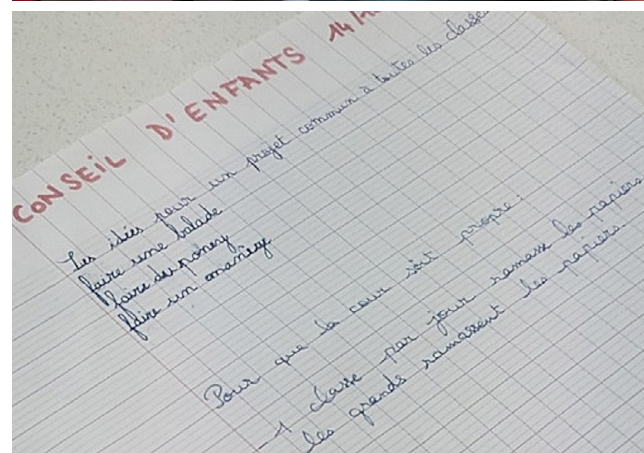 CONSEIL D'ENFANTS 14/1
Les idées pour un projet commun à toutes les classe
faire une balade
faire du poney
faire un manège
Pour que la cour soit propre :
-1 classe par jour ramasse les papiers
les grands ramassent les papiers.